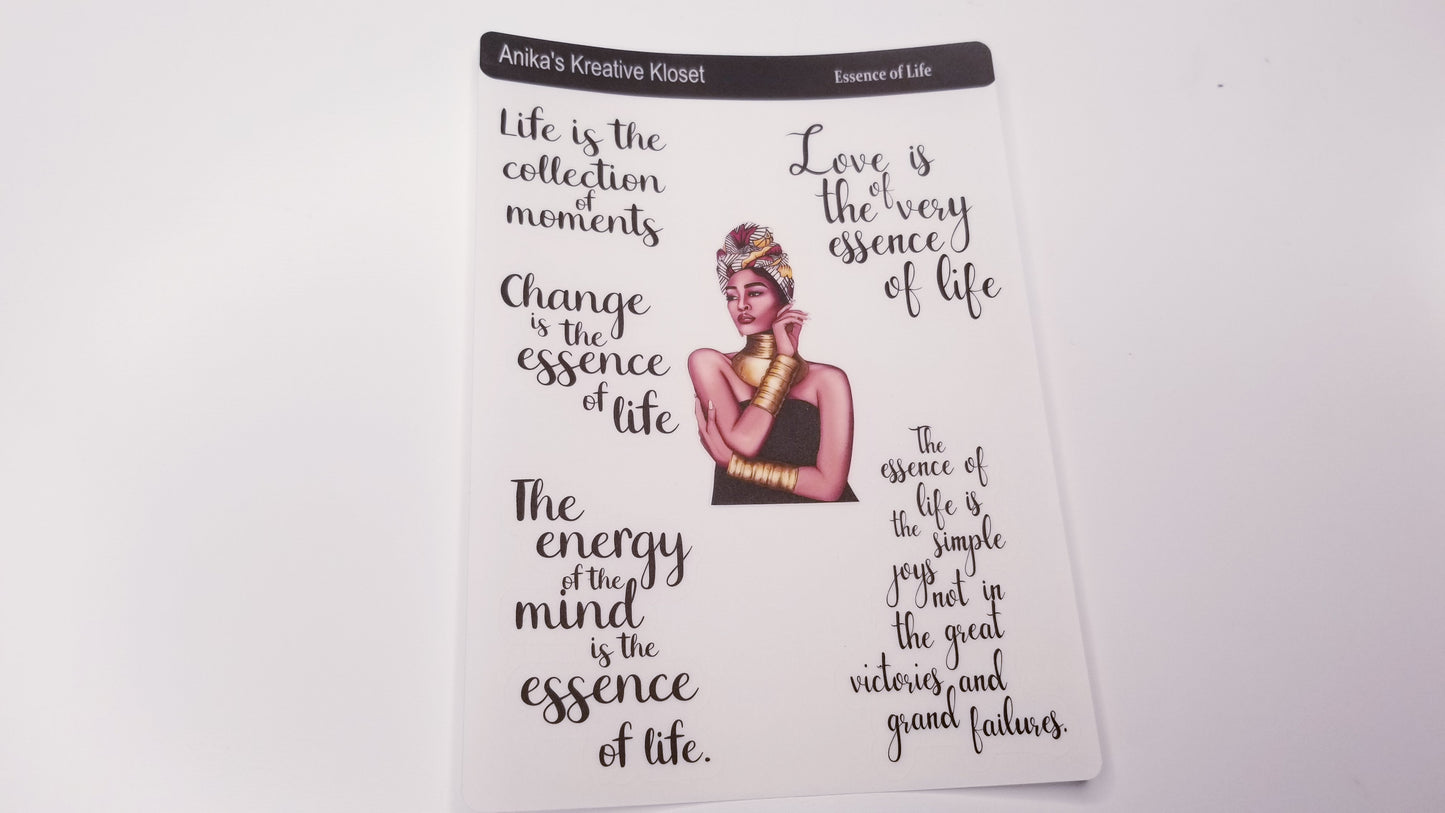 Anika's Kreative Kloset
Essence of Life
Life is the
collection
of
moments
Change
is the
essence
of life
The
energy
of the
mind
is the
essence
of life.
Love is
of
the very
essence
of life
The
essence of
life is
the simple
joys
not in
the great
victories and
grand failures.